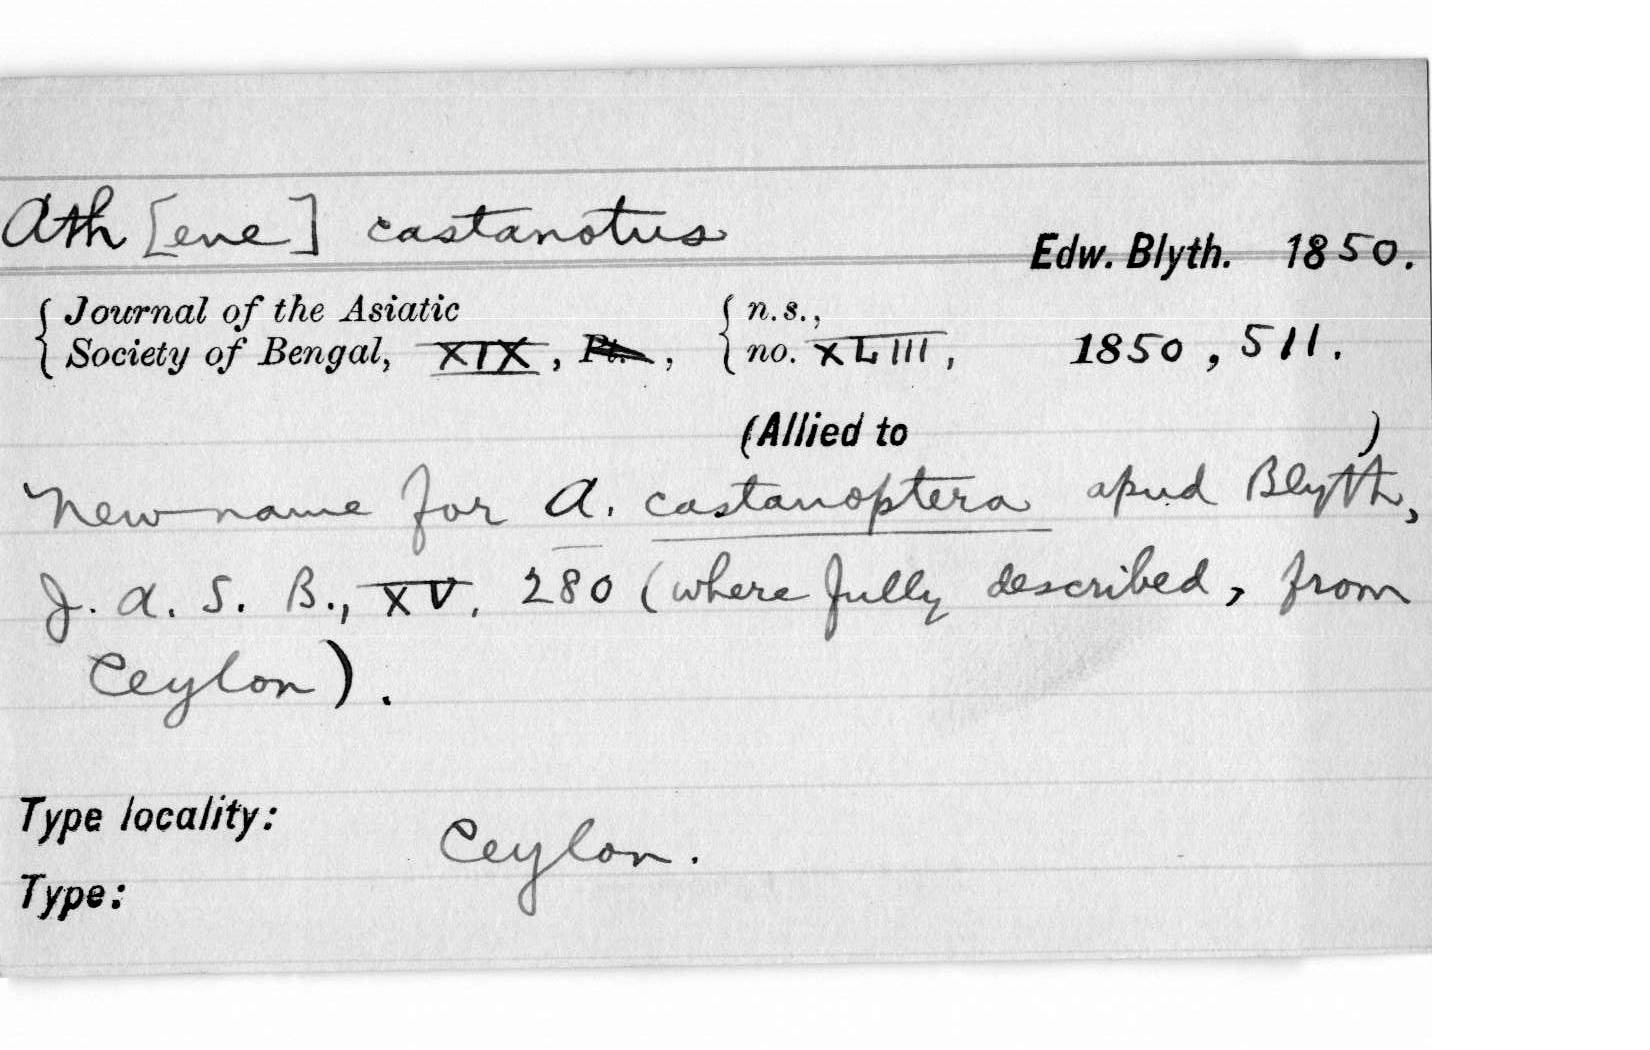 Ath [ene] castanotus
Edw. Blyth. 1850.
{ Journal of the Asiatic { n.s.,
{ Society of Bengal, XIX, Pt. , { no. XLIII, 1850, 511.
(Allied to )
New name for A. castanoptera apud Blyth,
J. A. S. B., XV, 280 (where fully described, from
Ceylon).
Type locality: Ceylon.
Type: